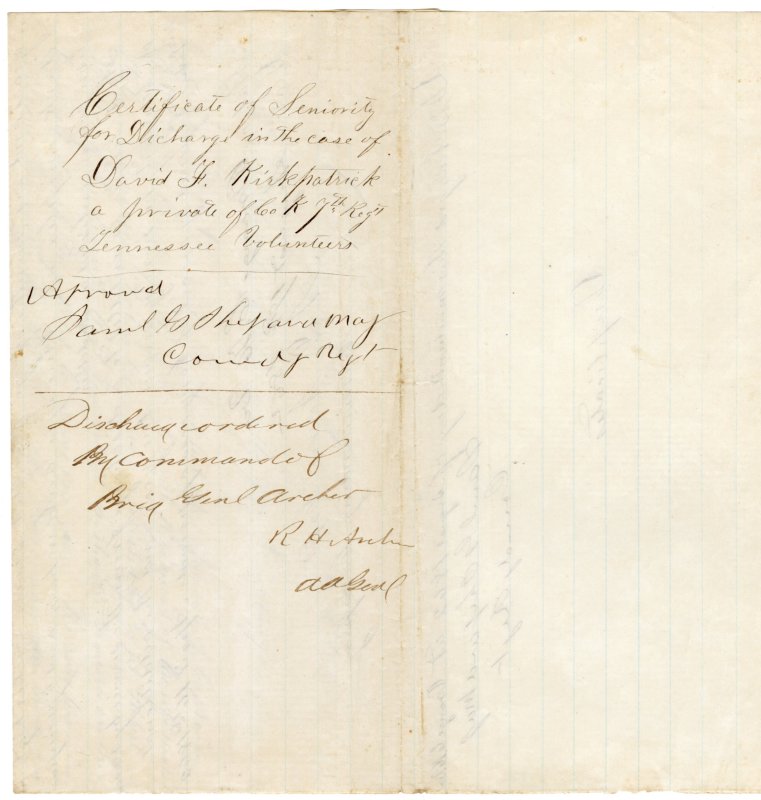 Certificate of Seniority
for Dicharge in the case of
David F. Kirkpatrick
a private of Co K 7th Regt
Tennessee Volunteers
Aproved
Saml G Shepard Maj
Comdg Regt
Discharge ordered
By Command of
Brig Genl Archer
R H Archer
AAGenl